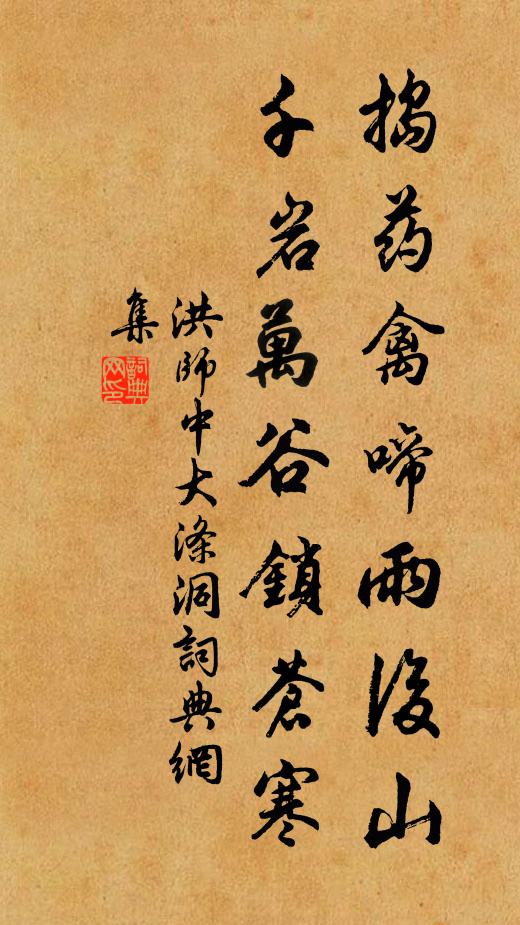 搗药禽啼雨後山
千岩萬谷鎖蒼寒
洪師中大滌洞詞典網
集
詞典网印